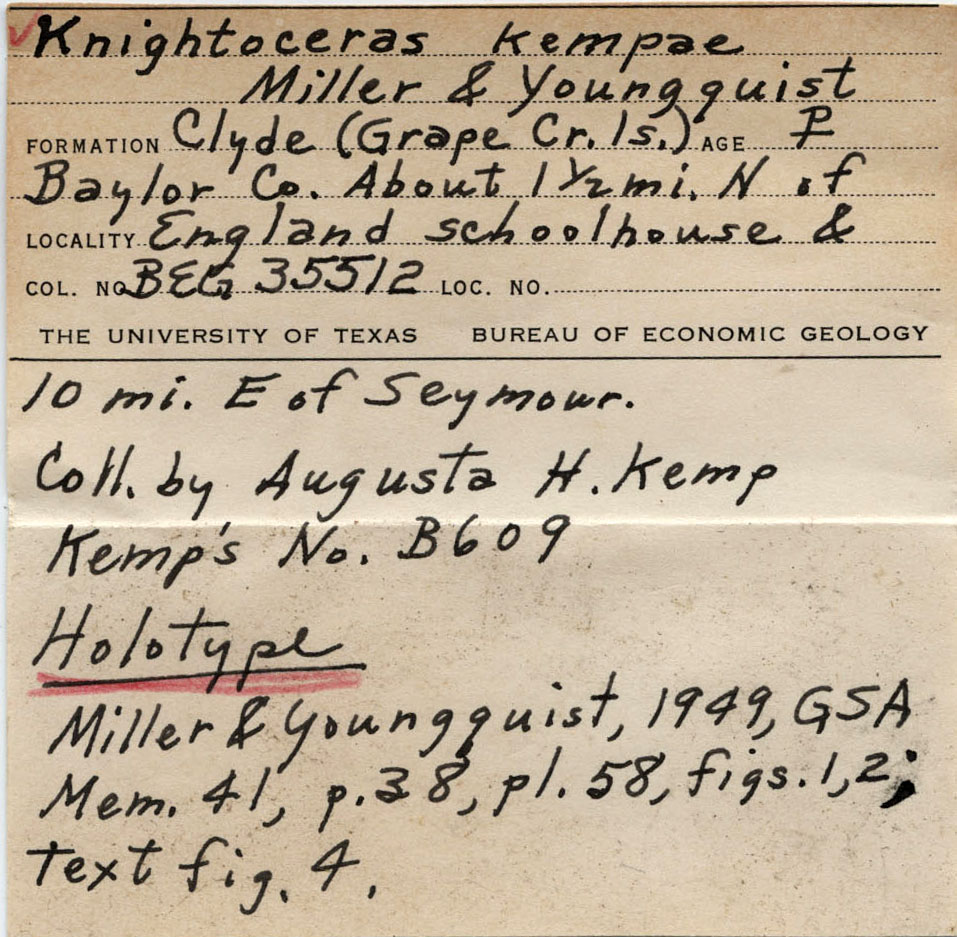 Knightoceras kempae
Miller & Youngquist
FORMATION Clyde (Grape Cr. ls.) AGE P
Baylor Co. About 1 1/2 mi. N of
LOCALITY England schoolhouse &
COL. NO. BEG 35512 LOC. NO.
THE UNIVERSITY OF TEXAS BUREAU OF ECONOMIC GEOLOGY
10 mi. E of Seymour.
Coll. by Augusta H. Kemp
Kemp's No. B609
Holotype
Miller & Youngquist, 1949, GSA
Mem. 41, p.38, pl. 58, figs. 1,2;
Text fig. 4.